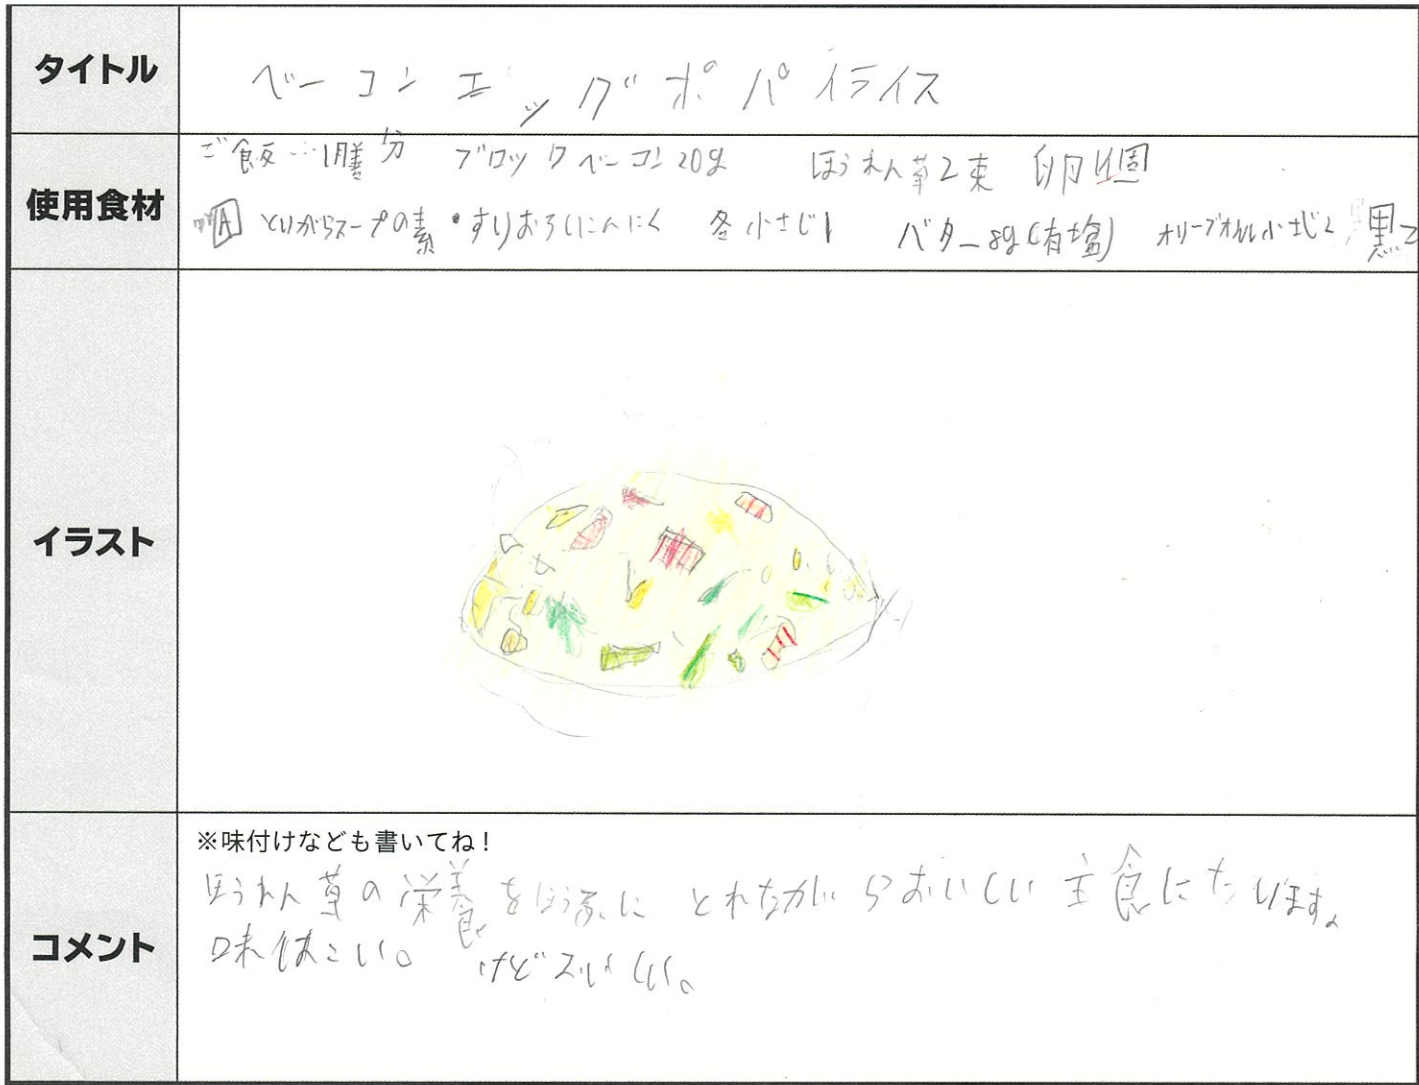 タイトル
ベーコンエッグポパイライス
使用食材
ご飯…1膳分 ブロックベーコン20g ほうれん草2束 卵1個
A とりがらスープの素・すりおろしにんにく 各小さじ1 バター8g(有塩) オリーブオイル小さじ2 黒こ
イラスト
コメント
※味付けなども書いてね!
ほうれん草の栄養をほうふにとれながらおいしい主食になります。
味はこい。 けどおいしい。